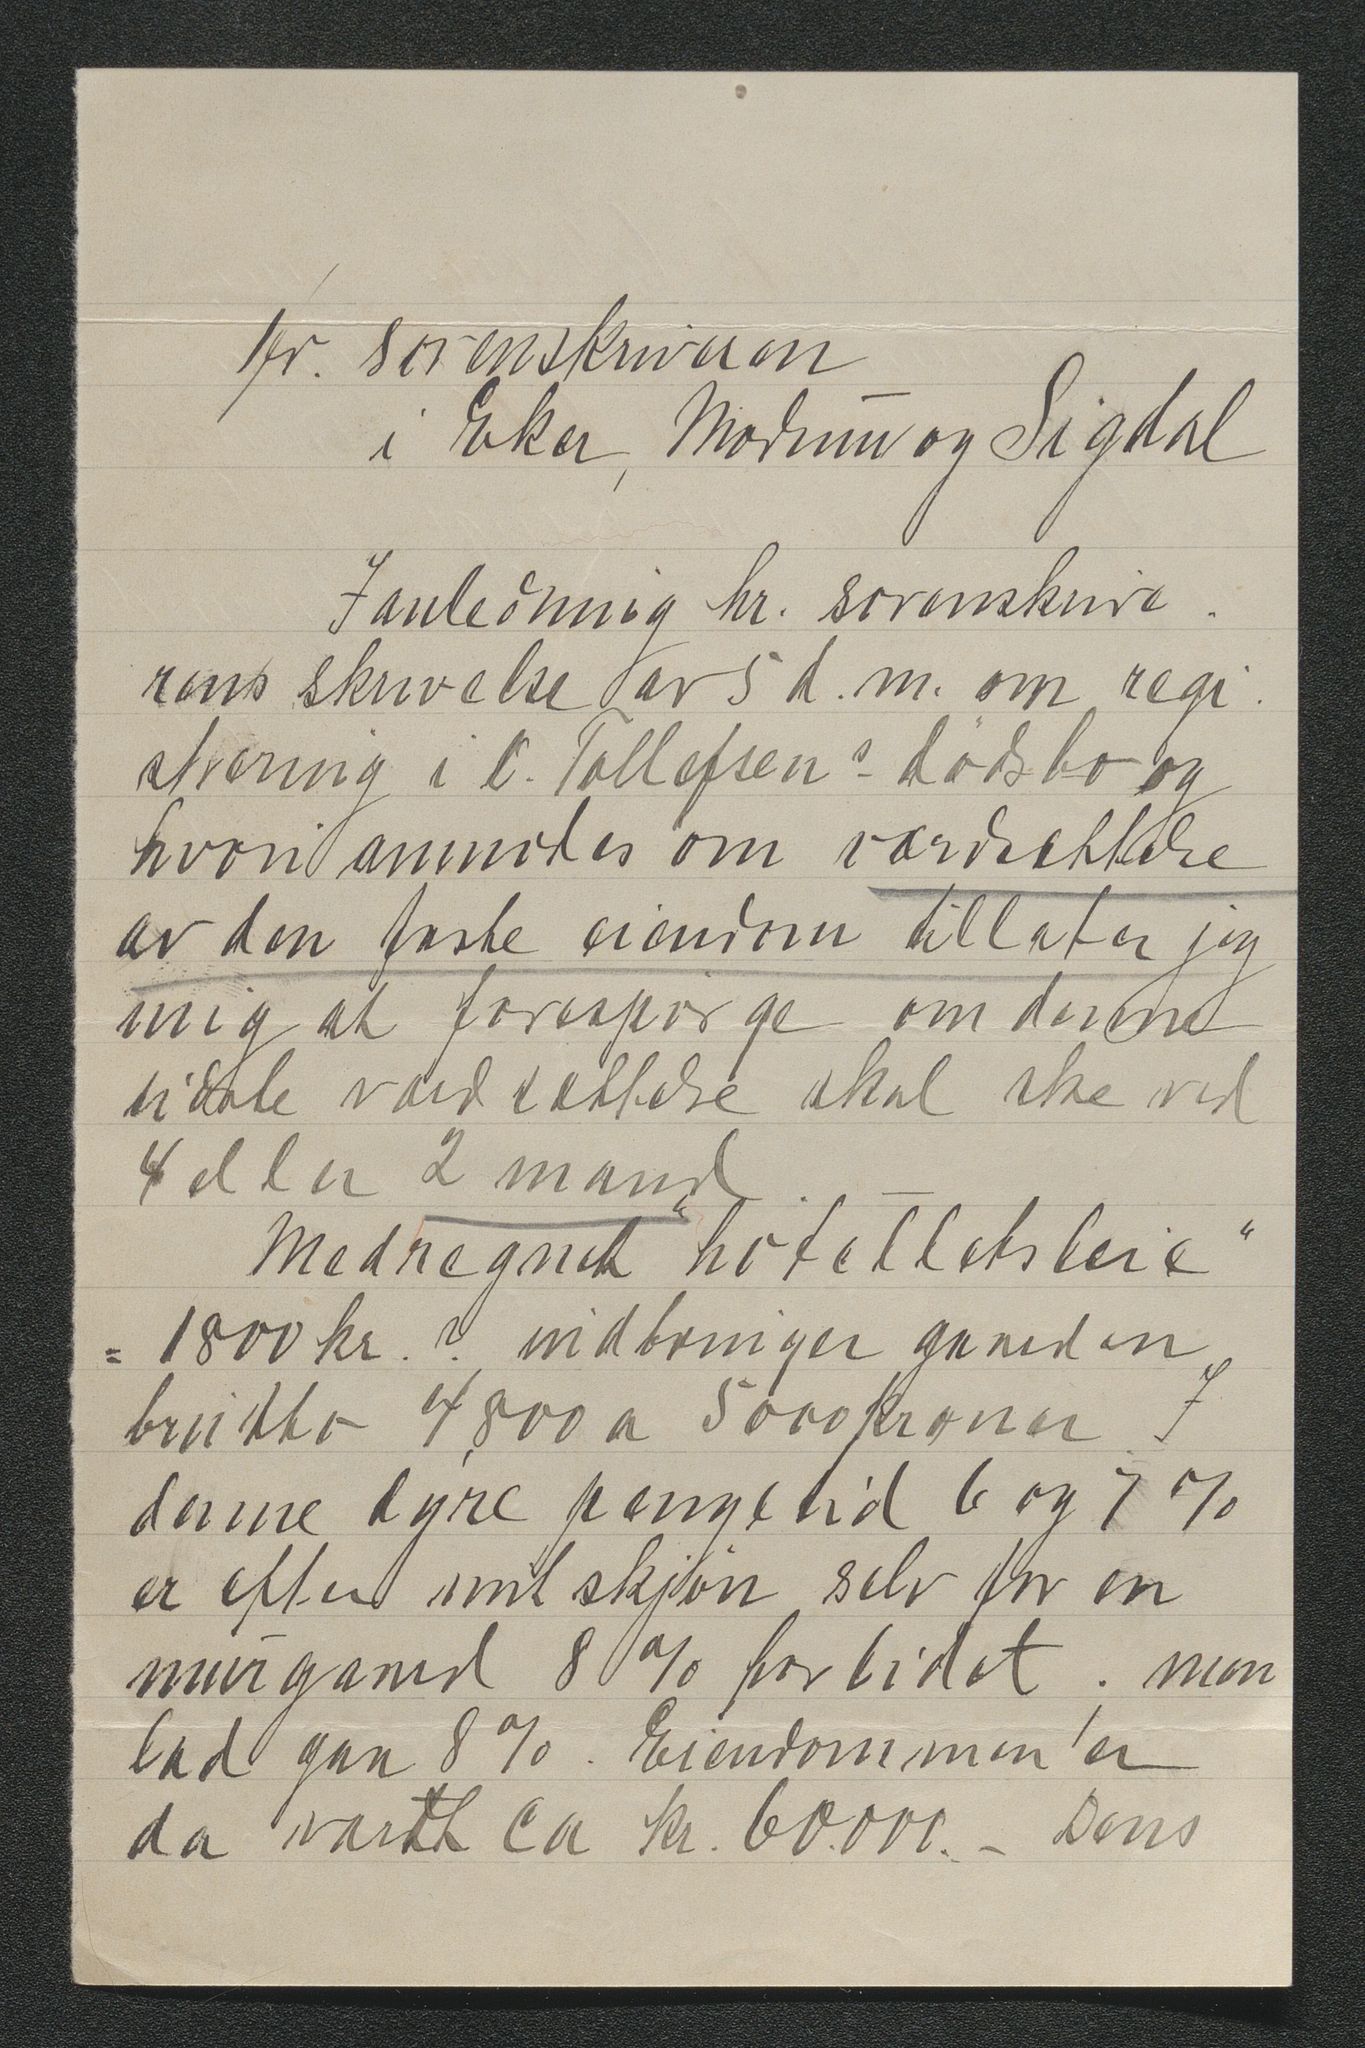 Hr. sorenskriveren
i Eker, Modum og Sigdal
I anledning hr. sorenskrive-
rens skrivelse av 5 d. m. om regi-
strering i C. Tollefsens dødsbo og
hvori anmodes om værdsættelse
av den faste eiendom tillater jeg
mig at forespørge om denne
sidste værdsættelse skal ske ved
4 eller 2 mænd.
Medregnet "hotelletsleie"
= 1800 kr.? indbringer gaarden
brutto 4,800 a 5000 kroner. I
denne dyre pengetid 6 og 7 %
er efter mit skjøn selv for en
murgaard 8 % for lidet. men
lad gaa 8 %. Eiendommen er
da værdt ca kr. 60.000.- Dens